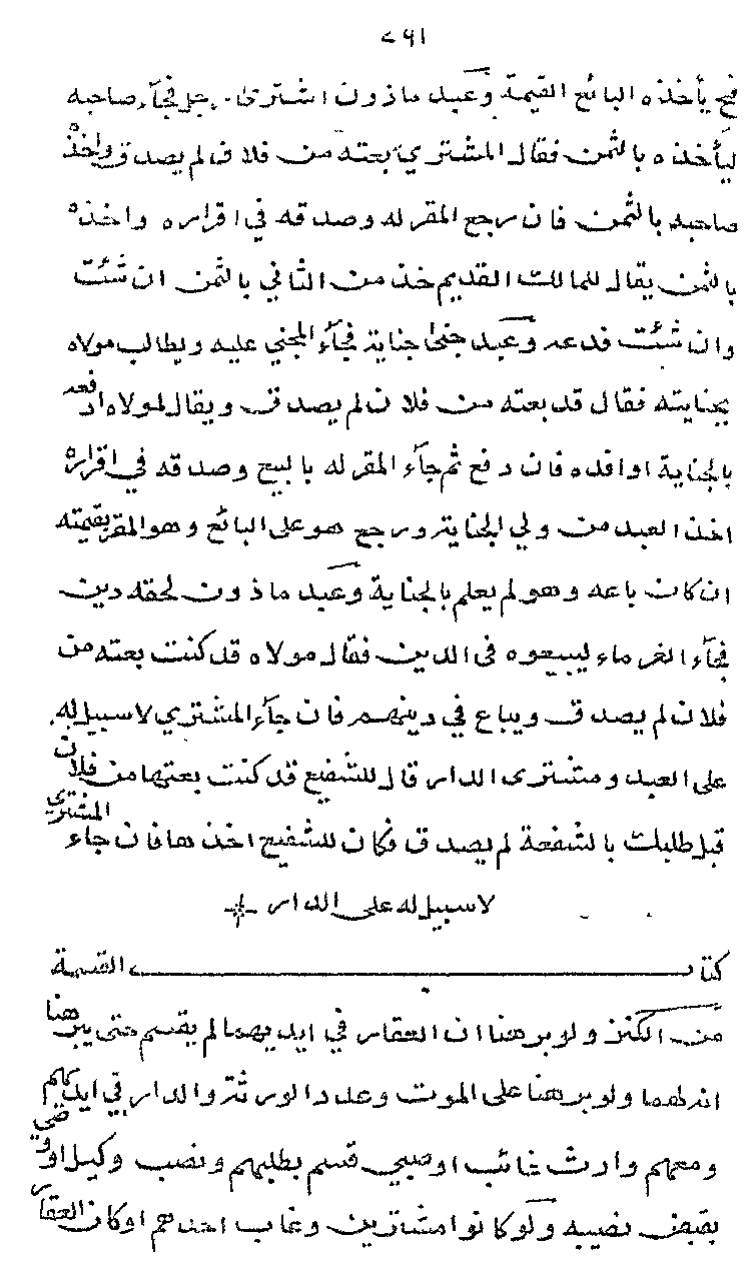 ٧٩١
فح يأخذه البائع القيمة وعبد ماذون اشترى رجل فجآء صاحبه
ليأخذه بالثمن فقال المشتري بعته من فلان لم يصدق واخذه
صاحبه بالثمن فان رجع المقر له وصدقه في اقراره واخذه
بالثمن يقال للمالك القديم خذ من الثاني بالثمن ان شئت
وان شئت فدعه وعبد جنى جناية فجآء المجني عليه ويطالب مولاه
بجنايته فقال قد بعته من فلان لم يصدق ويقال لمولاه ادفعه
بالجناية او افده فان دفع ثم جآء المقر له بالبيع وصدقه في اقراره
اخذ العبد من ولي الجناية ورجع هو على البائع وهو المقر بقيمته
ان كان باعه وهو لم يعلم بالجناية وعبد ماذون لحقه دين
فجآء الغرماء ليبيعوه في الدين فقال مولاه قد كنت بعته من
فلان لم يصدق ويباع في دينهم فان جآء المشتري لا سبيل له
على العبد ومشترى الدار قال للشفيع قد كنت بعتها من فلان
قبل طلبك بالشفعة لم يصدق فكان للشفيع اخذها فان جاء المشتري
لا سبيل له على الدار
كتاب القسمة
من الكنز ولو برهنا ان العقار في ايديهما لم يقسم حتى يبرهنا
انه لهما ولو برهنا على الموت وعدد الورثة والدار في ايديهم
ومعهم وارث غائب او صبي قسم بطلبهم ونصب وكيل او وصي
بقبض نصيبه ولو كانوا مشترين وغاب احدهم او كان العقار